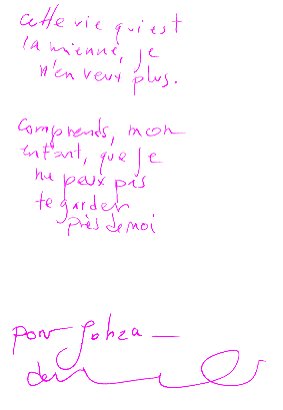 Cette vie qui est
la mienne, je
n'en veux plus.
Comprends, mon
enfant, que je
ne peux pas
te garder
près de moi
pour